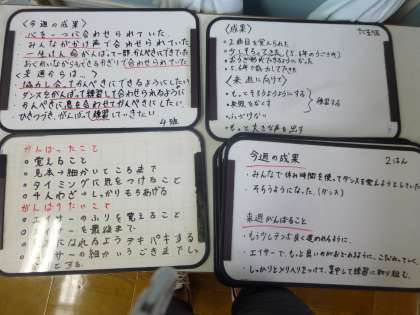 〈今週の成果〉
心を一つに合わせられていた。
みんながかけ声で合わせられていた
一生けん命がんばって一群かんぺきにできた
おくれないながらもできるかぎりで合わせられていた
来週からは…〉
協力し合ってかんぺきにできるようにしたい
ダンスをがんばって練習して合わせられるように
かんぺきに息を合わせてかんぺきにしたい
ひきつづき、がんばって練習していきたい
4班
〈成果〉
・2番目を覚えられた
・5.6年で協力してできた
〈来週に向けて〉
・もっとそろうようにする
練習する
・もっと大きな声を出す
がんばったこと
覚えること
見本→細かいところまで
タイミングに気をつけること
4千人わざ→しっかりもちあげる
がんばりたいこと
エイサーのふりを覚えること
エイサーを最後まで
になれるようテキパキする
エイサーの細かいうごきまでし、
とする。
今週の成果
2はん
・みんなで休み時間を使ってダンスを覚えようとしていた
・そろうようになった。(ダンス)
来週がんばること
・もう少しテンポ良く進められるように、
・エイサーで、もっと良いものがおどれるように、こだわっていく、
・しっかりとメリハリをつけて、集中して練習に取り組む。